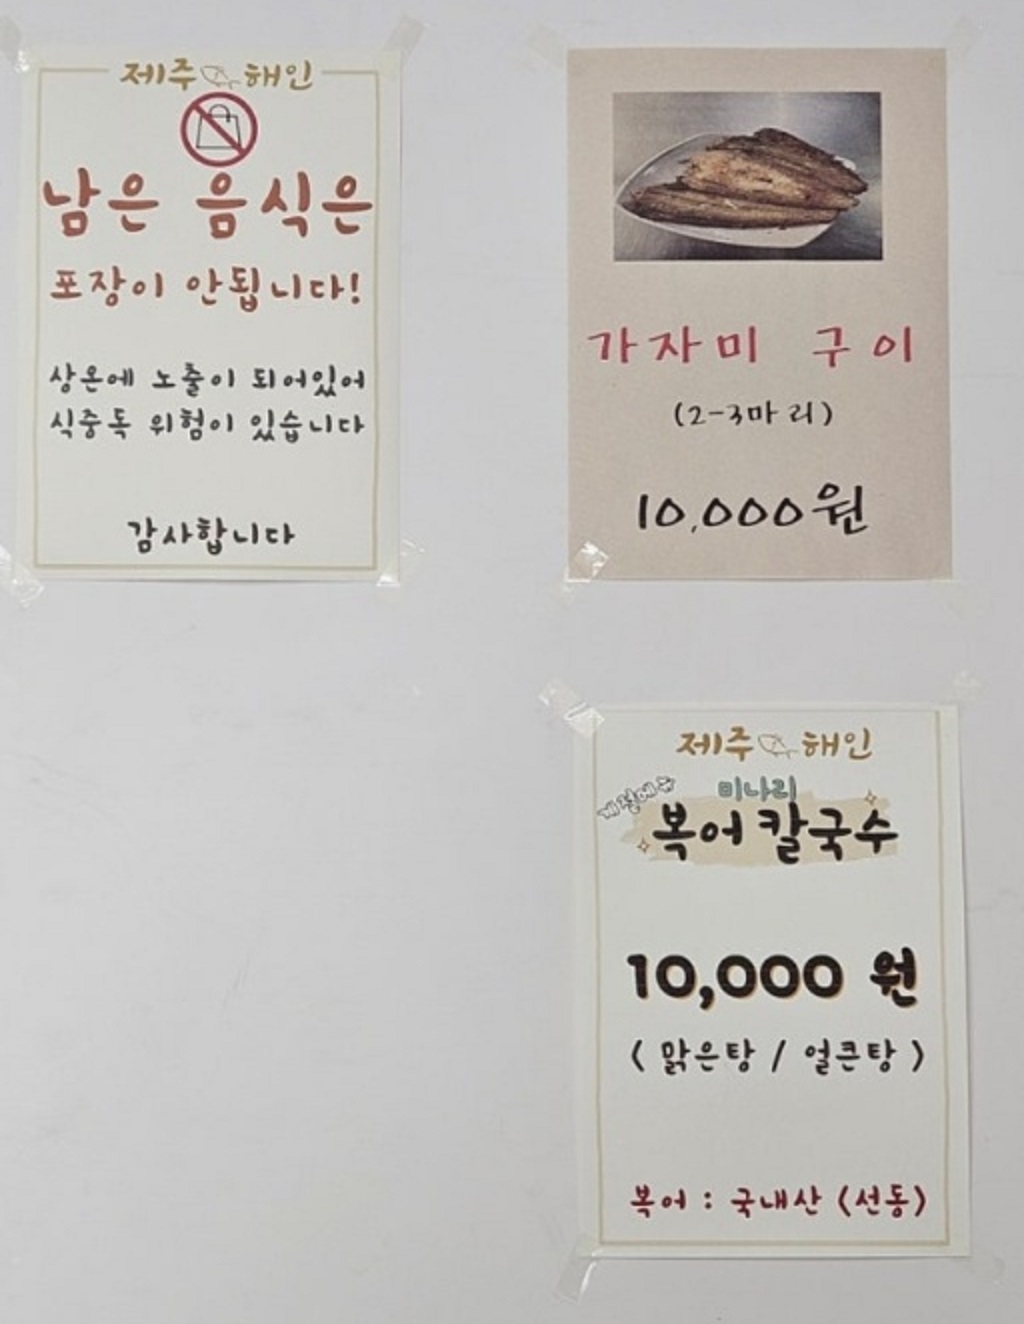 제주 해인
남은 음식은
포장이 안됩니다!
상온에 노출이 되어있어
식중독 위험이 있습니다
감사합니다
가자미 구이
(2-3마리)
10,000원
제주 해인
미나리
복어 칼국수
10,000 원
( 맑은탕 / 얼큰탕 )
복어 : 국내산 (선동)